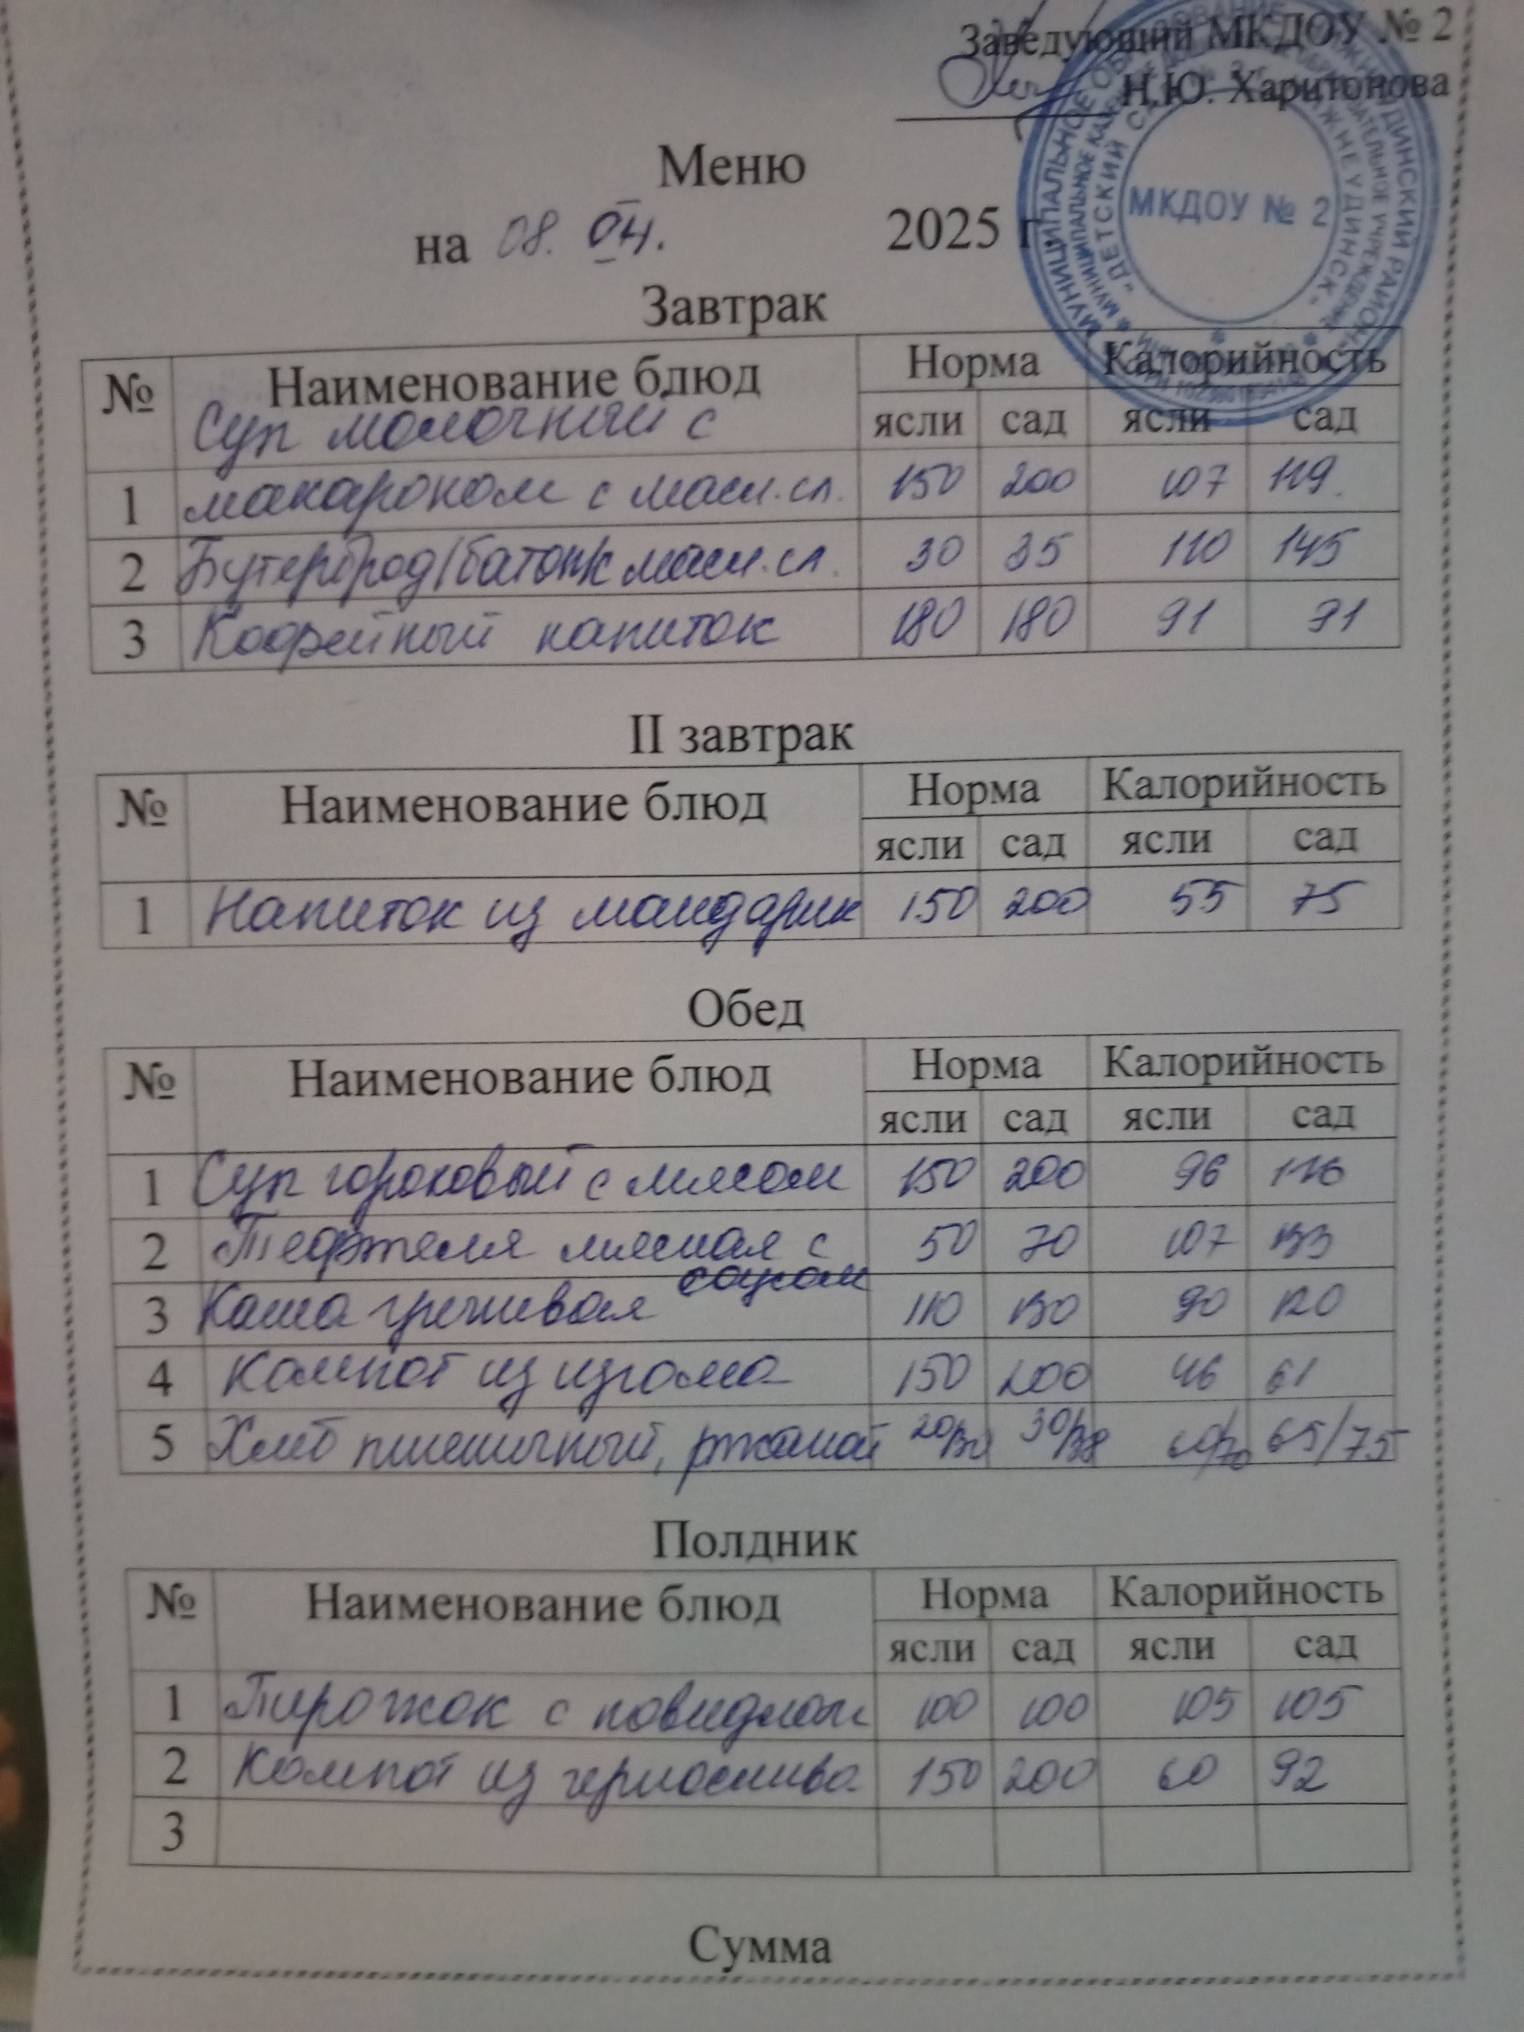 Заведующий МКДОУ № 2
Н.Ю. Харитонова
МУНИЦИПАЛЬНОЕ ОБРАЗОВАНИЕ НИЖНЕУДИНСКИЙ РАЙОН
"ДЕТСКИЙ САД НИЖНЕУДИНСК"
МКДОУ № 2
Меню
на 08. 04. 2025 г.
Завтрак
№ Наименование блюд Норма Калорийность
ясли сад ясли сад
Суп молочный с
1 макароном с масл.сл. 150 200 107 119.
2 Бутерброд/батон/с масл.сл. 30 35 110 145
3 Кофейный напиток 180 180 91 91
II завтрак
№ Наименование блюд Норма Калорийность
ясли сад ясли сад
1 Напиток из мандарин 150 200 55 75
Обед
№ Наименование блюд Норма Калорийность
ясли сад ясли сад
1 Суп гороховый с мясом 150 200 96 116
2 Тефтеля мясная с 50 70 107 133
соусом
3 Каша гречневая 110 130 90 120
4 Компот из изюма 150 200 46 61
5 Хлеб пшеничный, ржаной 20/30 30/38 60/70 65/75
Полдник
№ Наименование блюд Норма Калорийность
ясли сад ясли сад
1 Пирожок с повидлом 100 100 105 105
2 Компот из чернослива 150 200 60 92
3
Сумма